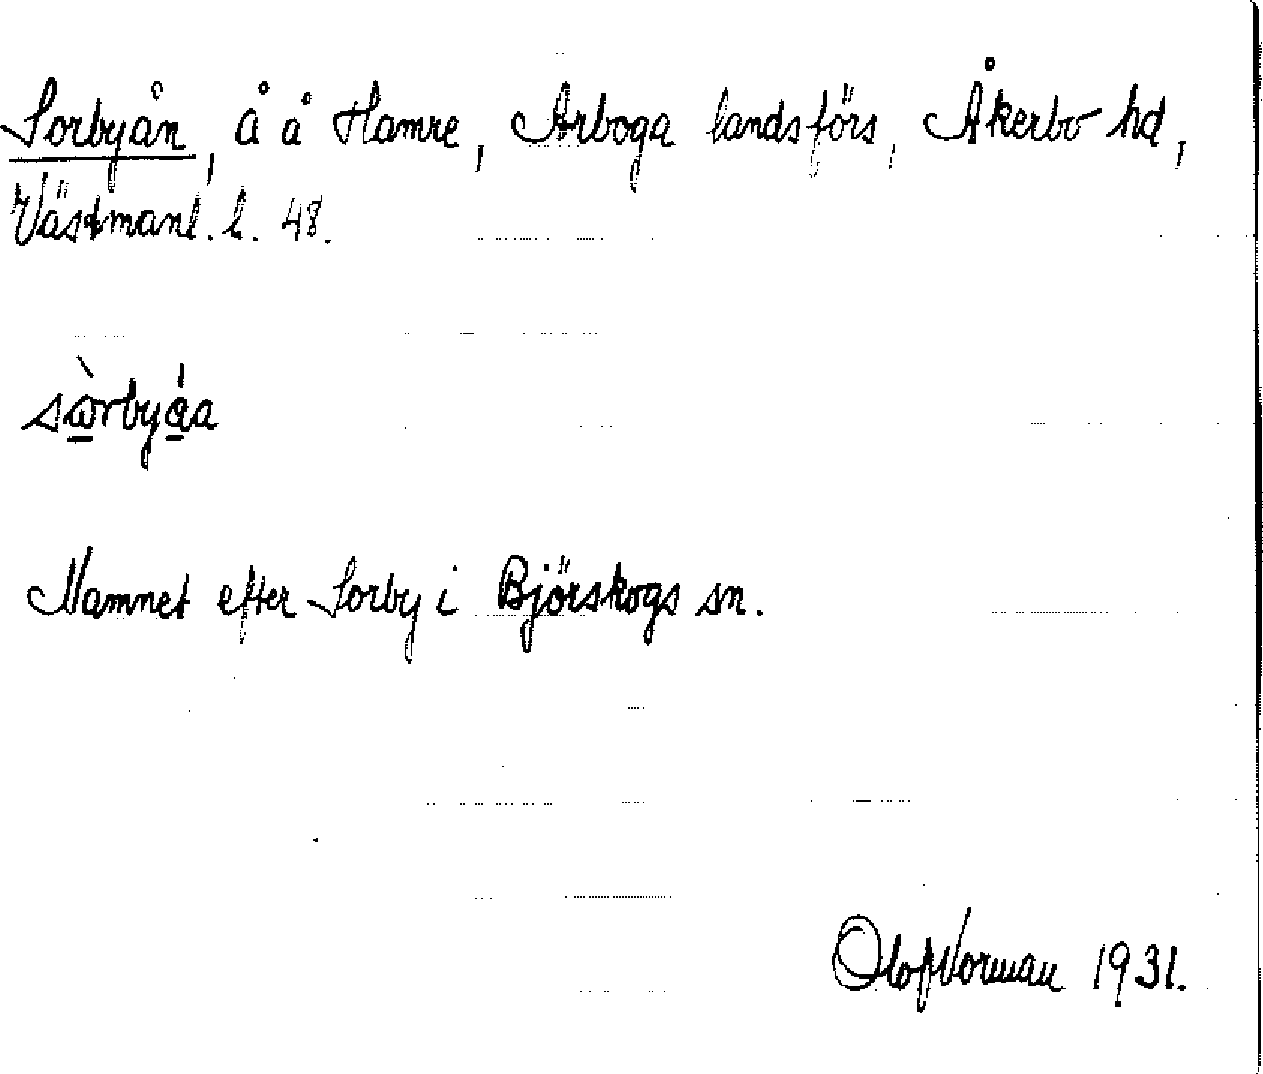 Sorbyån, å å Hamre, Arboga landsförs, Åkerbo hd,
Västmanl. l. 48.
sòrbyáa
Namnet efter Sorby i Björskogs sn.
Olof Norman 1931.